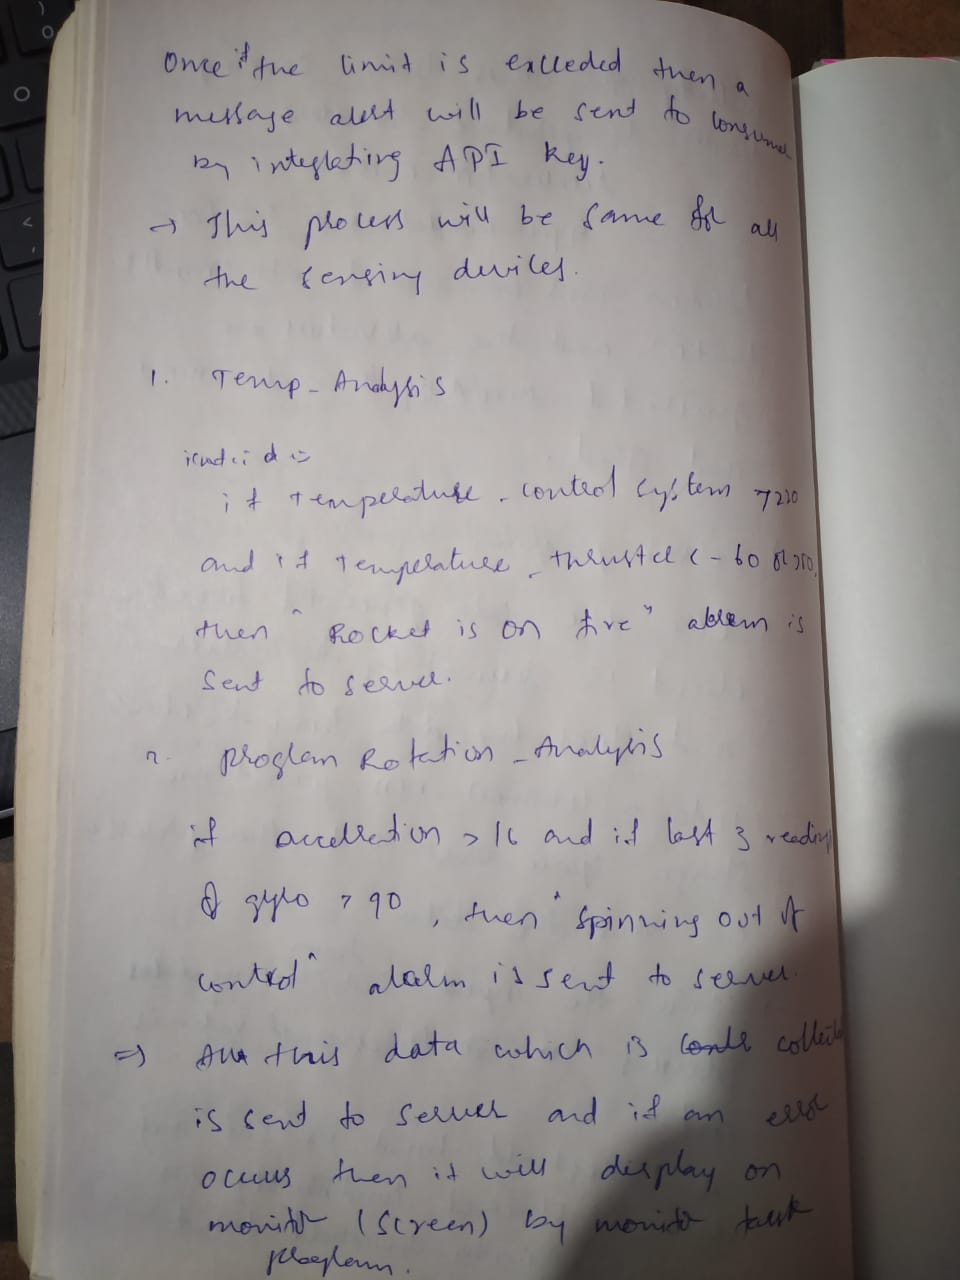 Once if the limit is exceeded then a
message alert will be sent to consumer
by integrating API key.
→ This process will be same for all
the sensing devices.
1. Temp_Analysis
if temperature_control system >
and if temperature_thruster < -60 or
then "Rocket is on fire" alarm is
sent to server.
2. program Rotation_Analysis
if acceleration > 16 and if last 3 reading
of gyro > 90, then "spinning out of
control" alarm is sent to server.
⇒ All this data which is collected
is sent to server and if an error
occurs then it will display on
monitor (screen) by monitor task
program.